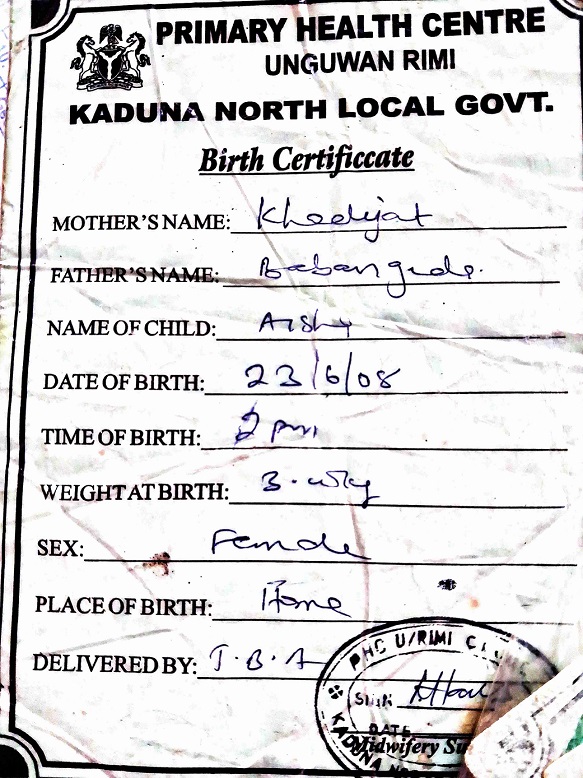 PRIMARY HEALTH CENTRE
UNGUWAN RIMI
KADUNA NORTH LOCAL GOVT.
Birth Certificcate
MOTHER'S NAME: Khadijat
FATHER'S NAME: Babangida.
NAME OF CHILD: Aisha
DATE OF BIRTH: 23/6/08
TIME OF BIRTH: 2pm
WEIGHT AT BIRTH: 3.
SEX: Female
PLACE OF BIRTH: Home
DELIVERED BY: T.B.A
PHC U/RIMI
SIGN
DATE
Midwifery
KADUNA NORTH